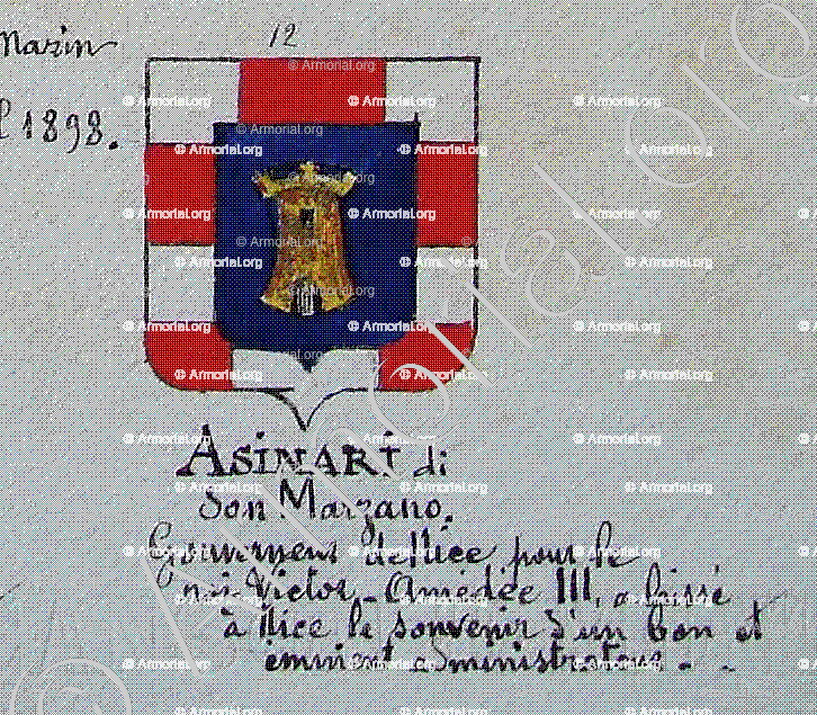 12
Masin
1898.
ASINARI di
San Marzano.
Gouverneur de Nice pour le
roi Victor-Amédée III, a laissé
à Nice le souvenir d'un bon et
éminent administrateur.
© Armorial.org